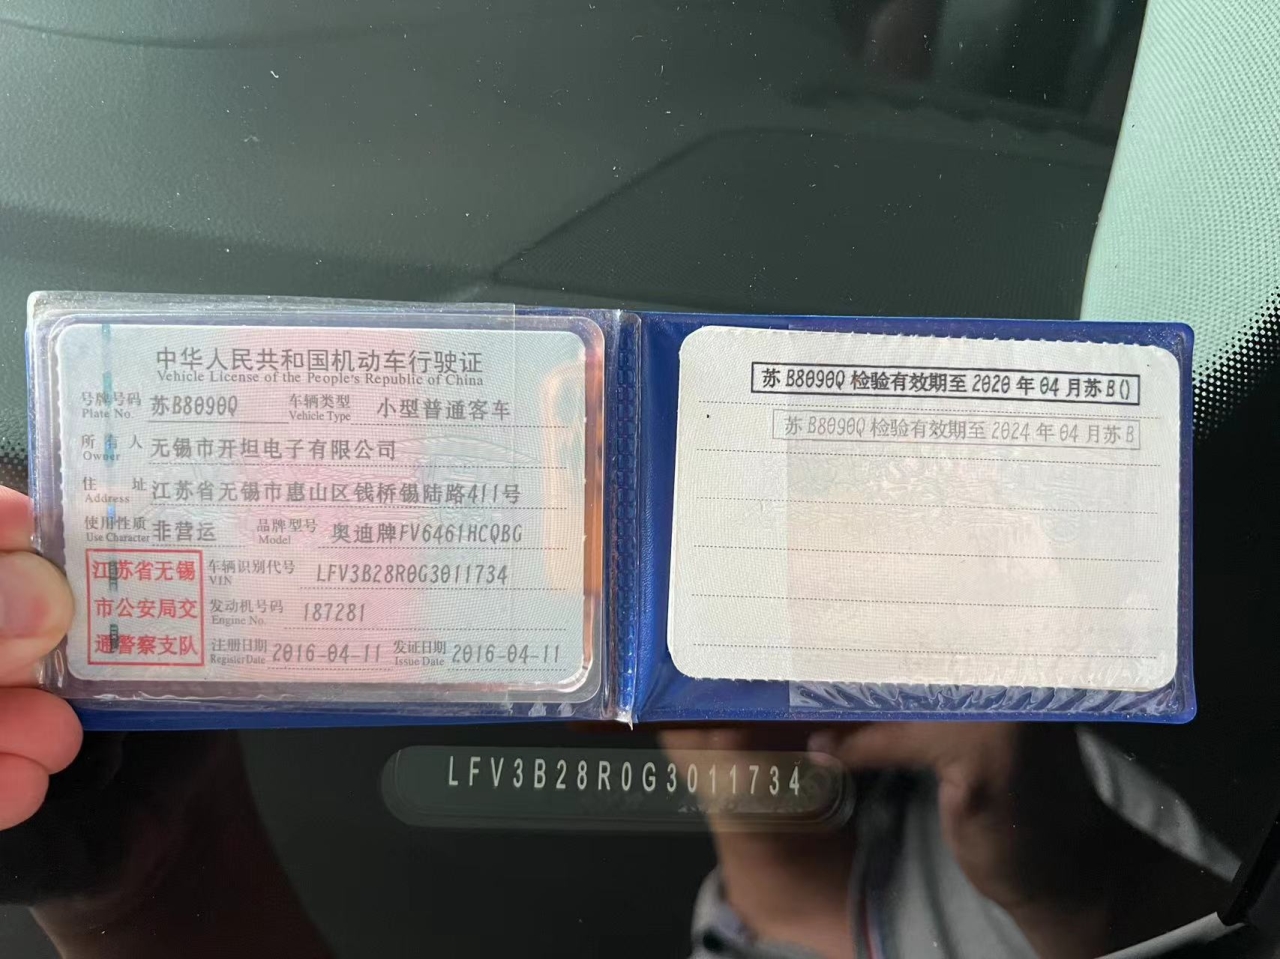 中华人民共和国机动车行驶证
Vehicle License of the People's Republic of China
号牌号码 苏B8090Q 车辆类型 小型普通客车
Plate No. Vehicle Type
所有人 无锡市开坦电子有限公司
Owner
住址 江苏省无锡市惠山区钱桥锡陆路411号
Address
使用性质 非营运 品牌型号 奥迪牌FV6461HCQBG
Use Character Model
江苏省无锡
市公安局交
通警察支队
车辆识别代号 LFV3B28R0G3011734
VIN
发动机号码 187281
Engine No.
注册日期 2016-04-11 发证日期 2016-04-11
Register Date Issue Date
苏B8090Q检验有效期至2020年04月苏B()
苏B8090Q检验有效期至2024年04月苏B
LFV3B28R0G3011734